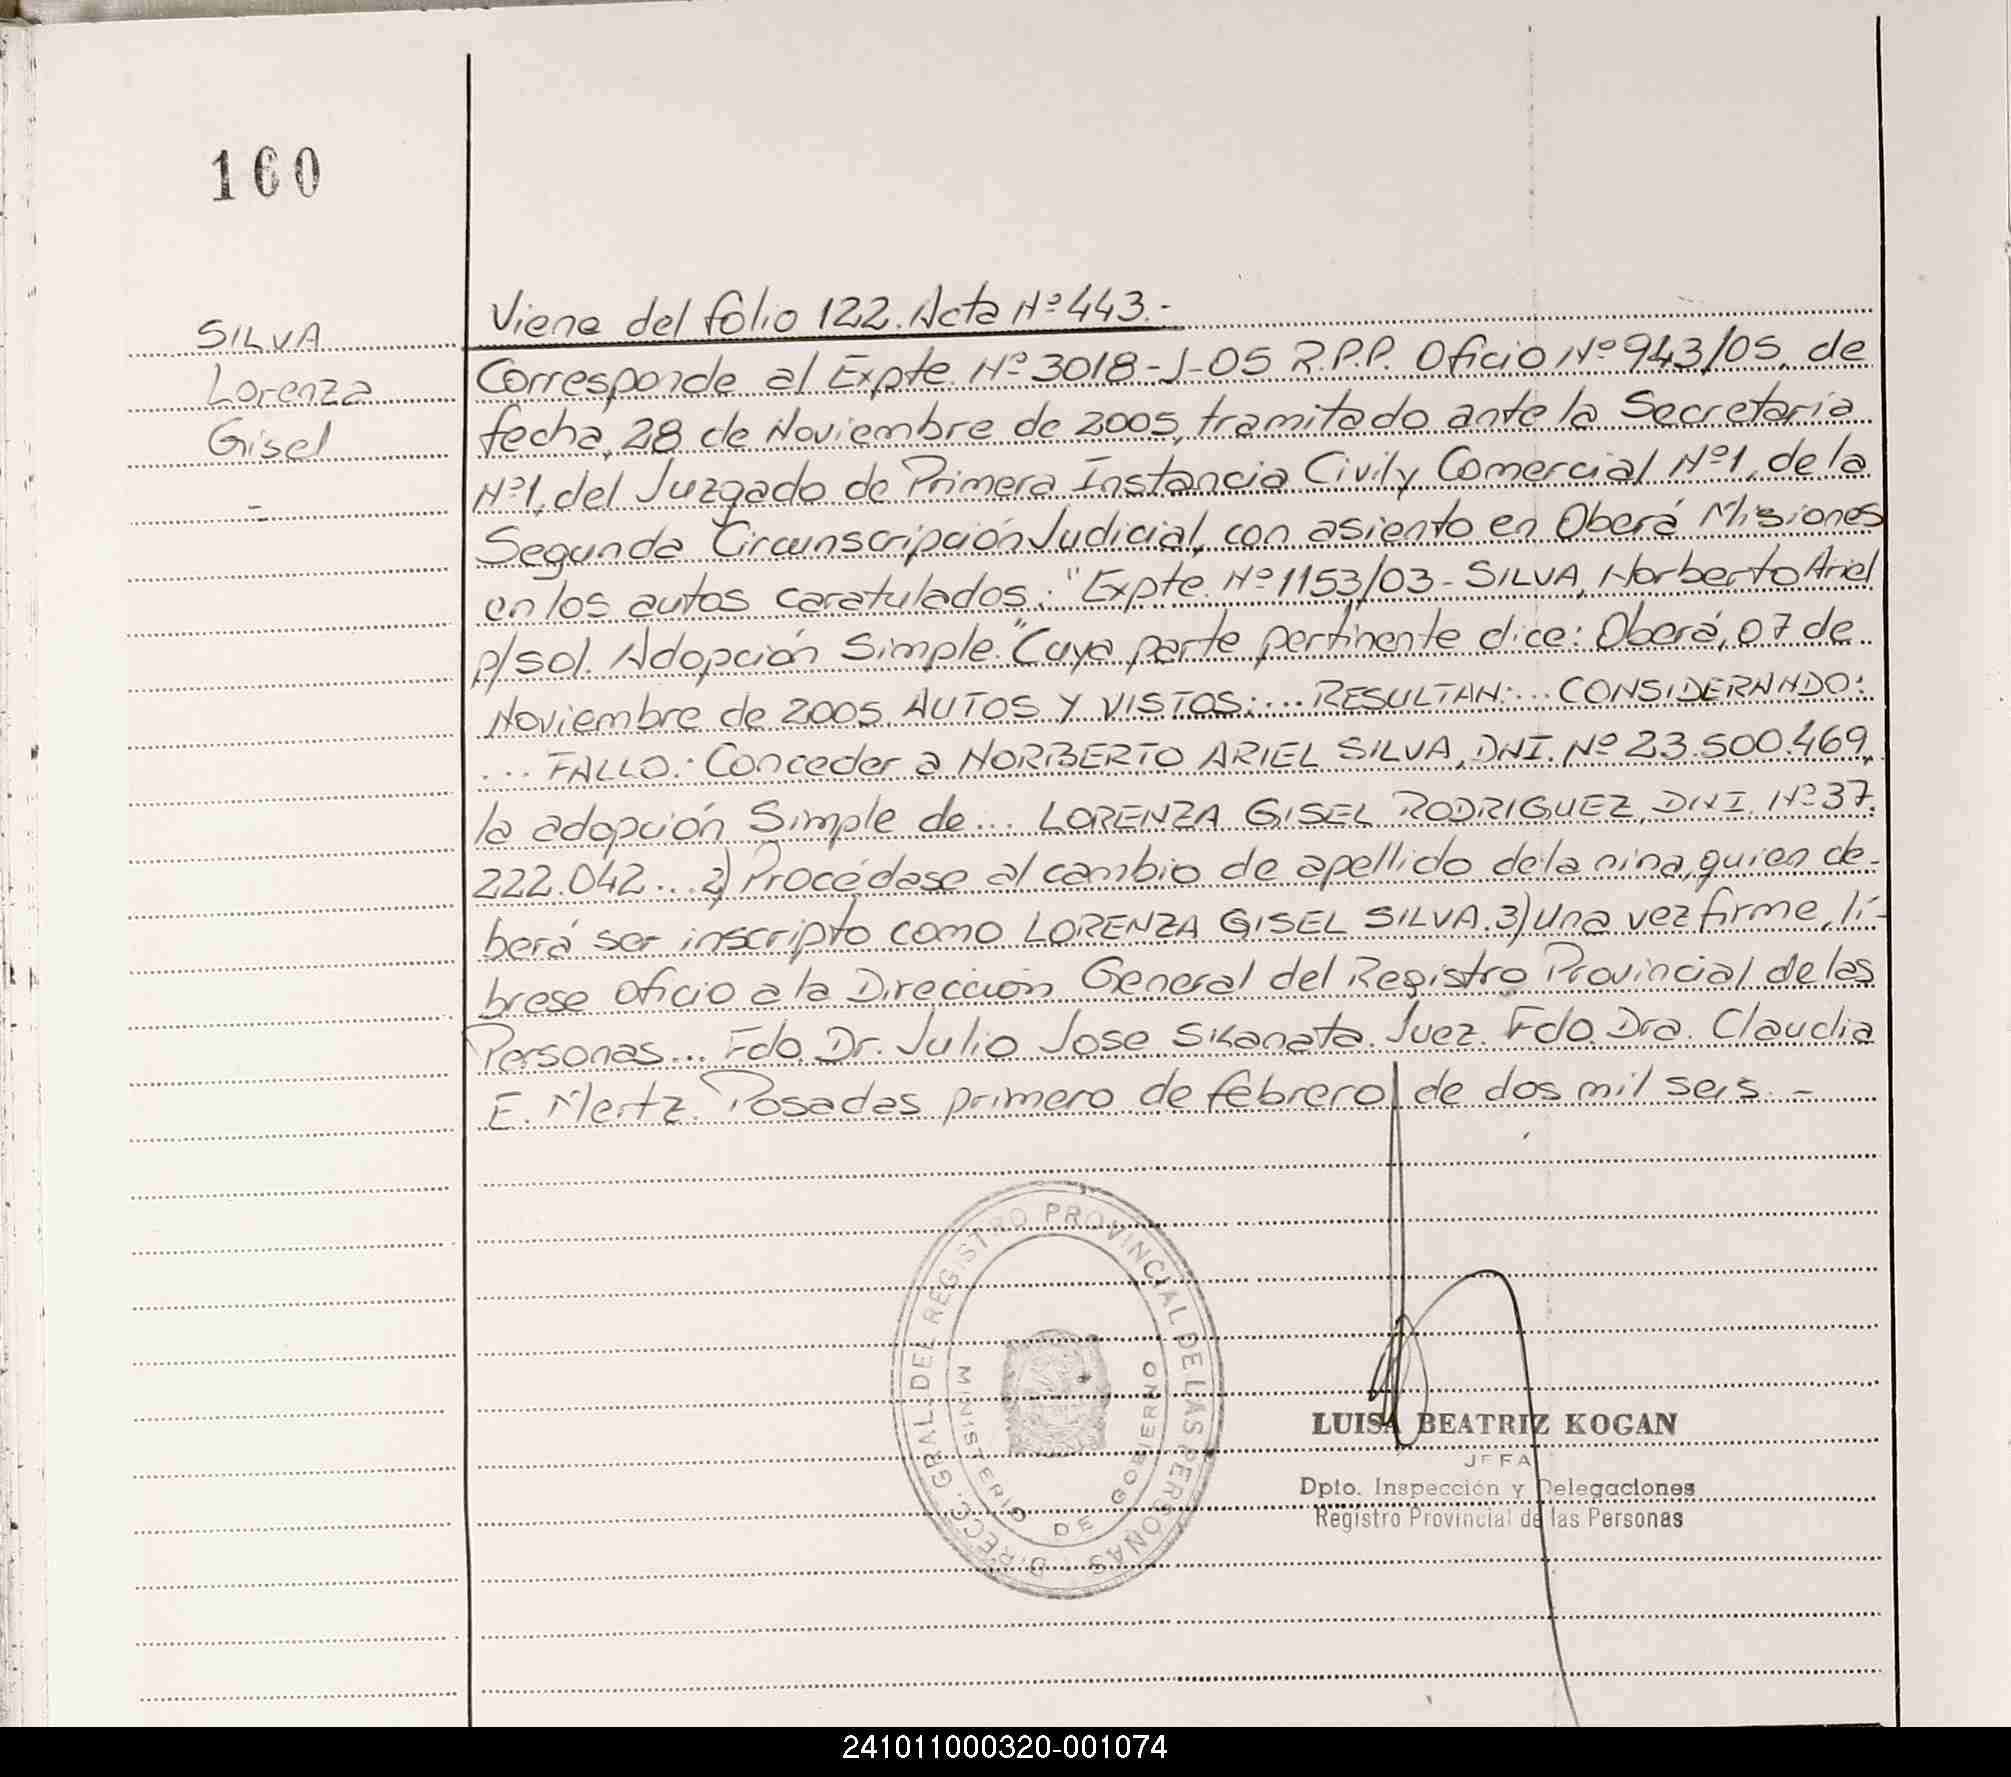 160
SILVA
Lorenza
Gisel
-
Viene del folio 122. Acta Nº 443.-
Corresponde al Expte. Nº 3018-J-05 R.P.P. Oficio Nº 943/05, de
fecha, 28 de Noviembre de 2005, tramitado ante la Secretaría
Nº1, del Juzgado de Primera Instancia Civil y Comercial Nº1, de la
Segunda Circunscripción Judicial, con asiento en Oberá Misiones
en los autos caratulados: "Expte. Nº 1153/03 - SILVA, Norberto Ariel
p/sol. Adopción Simple." Cuya parte pertinente dice: Oberá, 07 de
Noviembre de 2005. AUTOS Y VISTOS:... RESULTAN:... CONSIDERANDO:
... FALLO.: Conceder a NORBERTO ARIEL SILVA, DNI. Nº 23.500.469,
la adopción Simple de... LORENZA GISEL RODRIGUEZ, DNI. Nº 37.
222.042... 2) Procédase al cambio de apellido de la nina, quien de-
berá ser inscripto como LORENZA GISEL SILVA. 3) Una vez firme, lí-
brese oficio a la Dirección General del Registro Provincial de las
Personas... Fdo. Dr. Julio Jose Sikanata. Juez. Fdo. Dra. Claudia
E. Mertz. Posadas primero de febrero de dos mil seis. -
DIRECC. GRAL. DEL REGISTRO PROVINCIAL DE LAS PERSONAS
MINISTERIO DE GOBIERNO
LUISA BEATRIZ KOGAN
JEFA
Dpto. Inspección y Delegaciones
Registro Provincial de las Personas
241011000320-001074